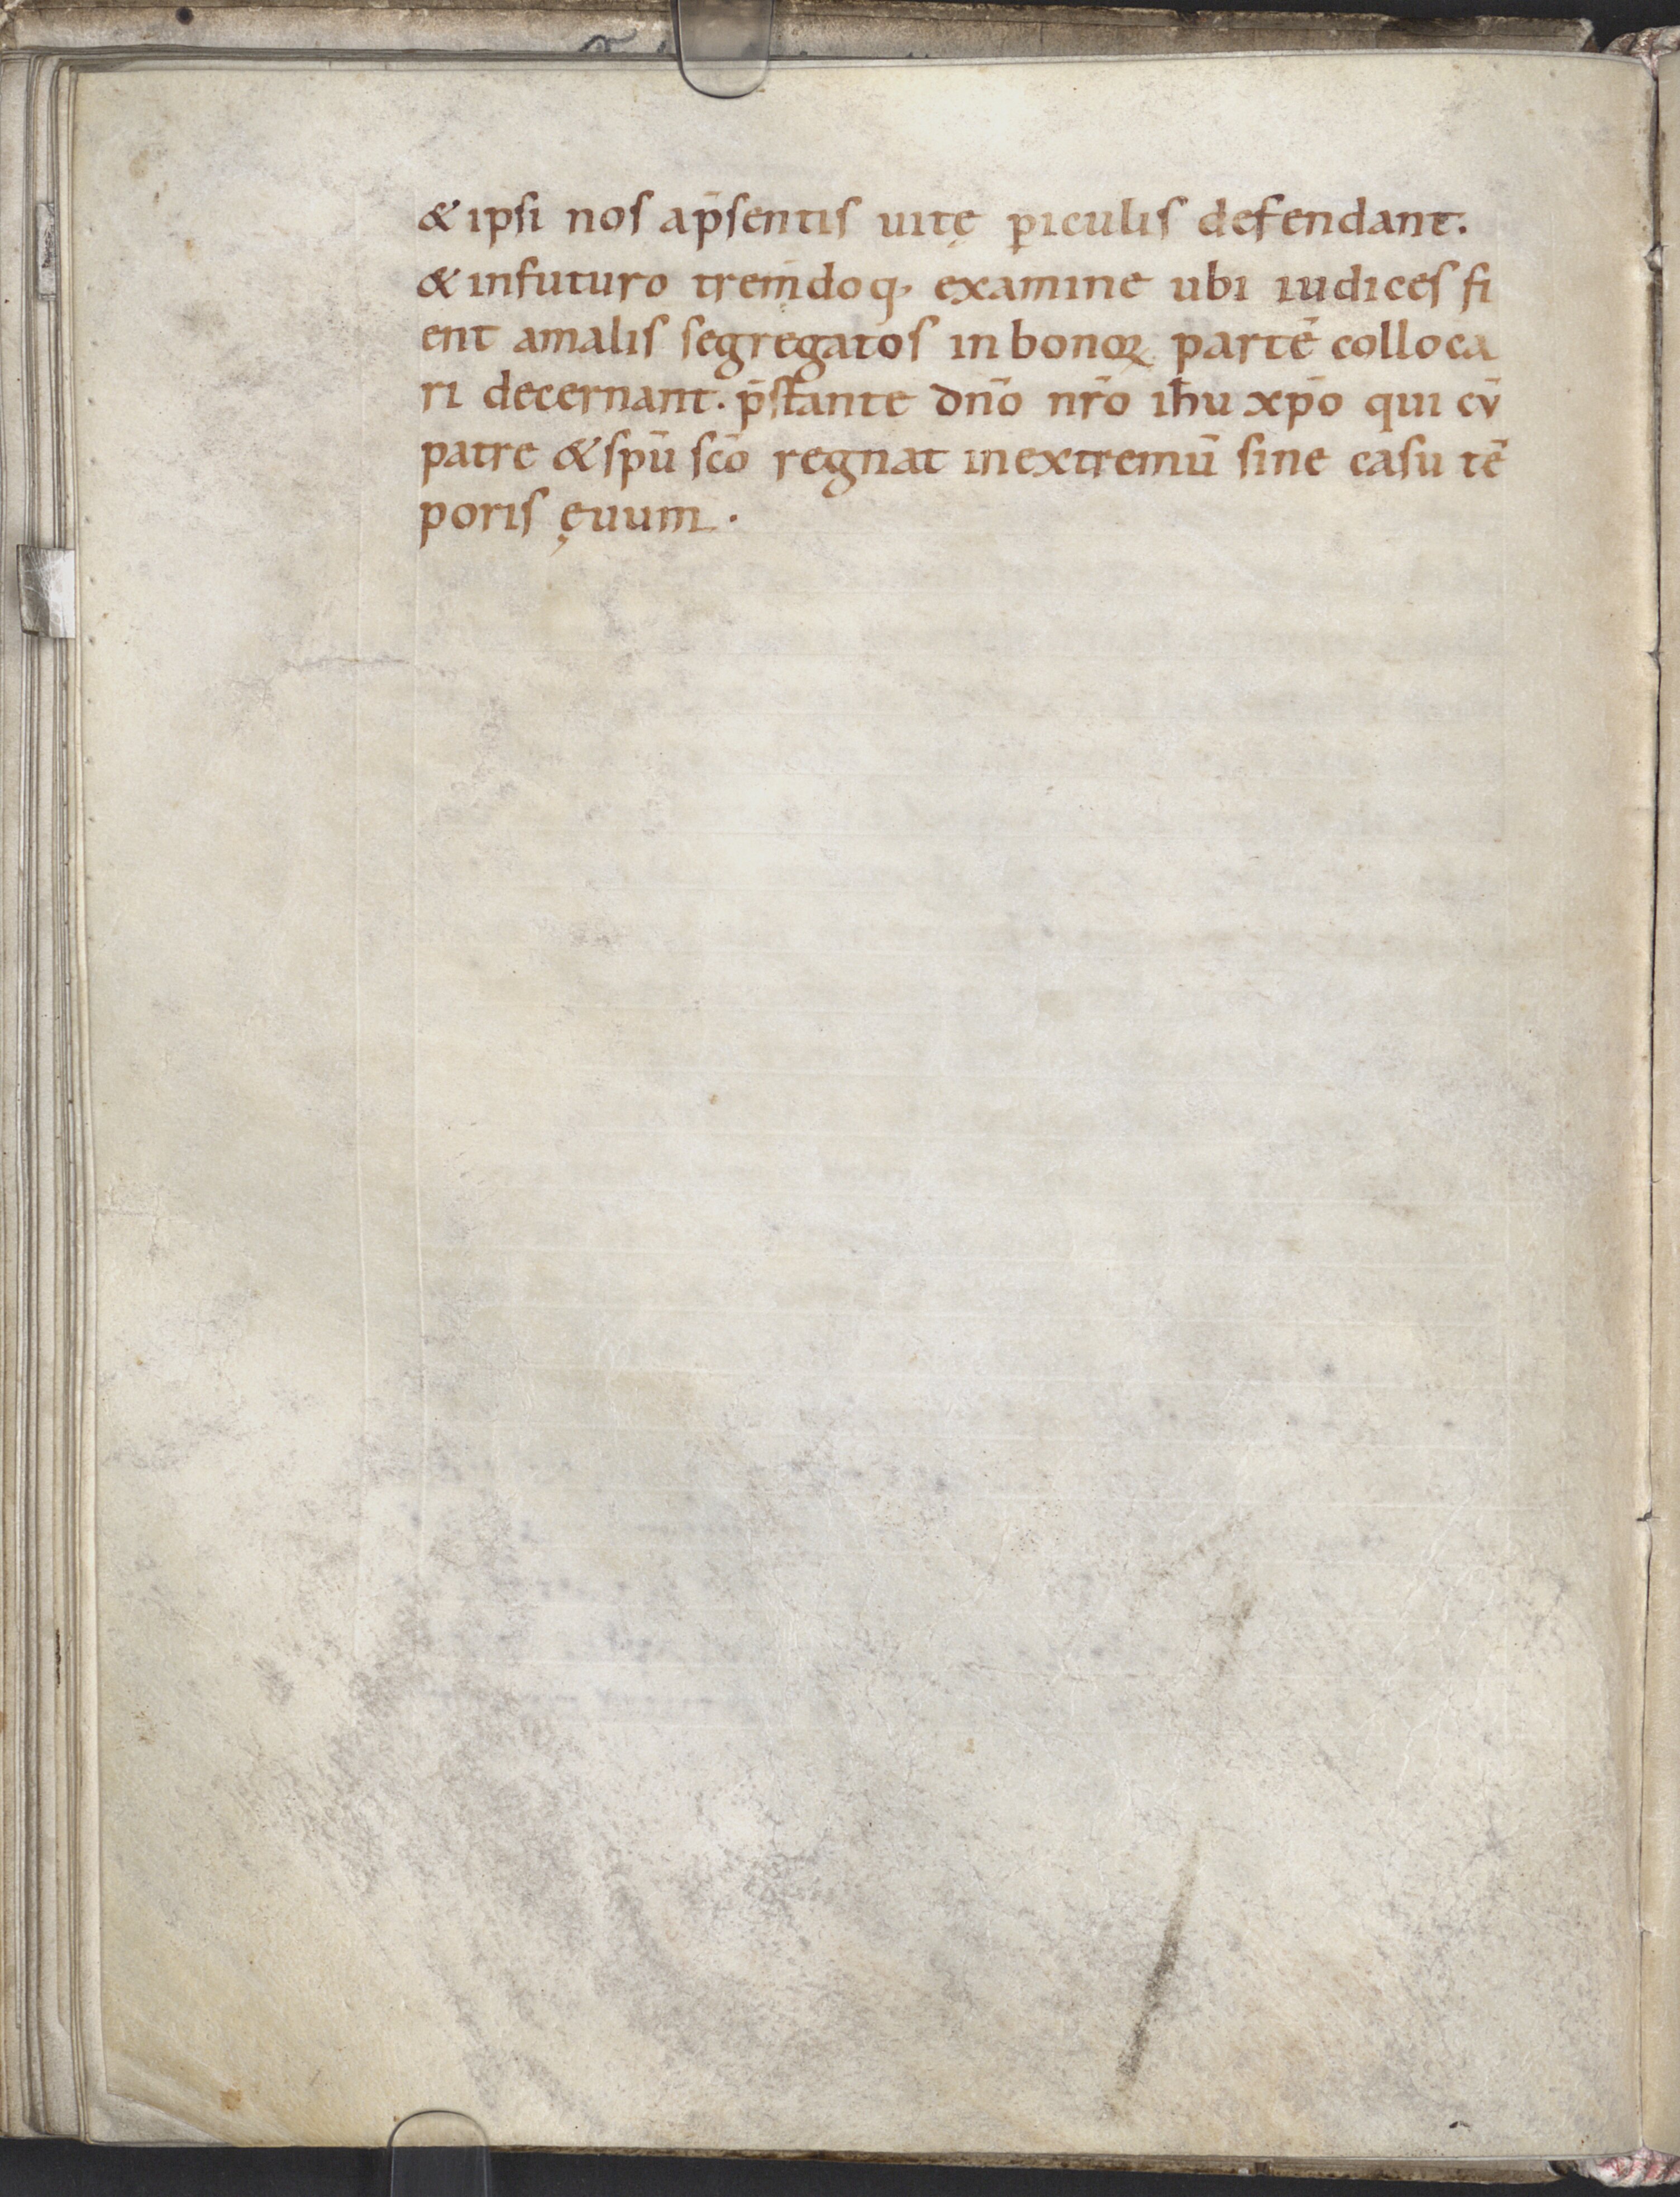 & ipsi nos ap̄sentis uitę ꝑiculis defendant.
& infuturo trem̄doq; examine ubi iudices fi
ent amalis segregatos in bonoꝝ partē colloca
ri decernant. p̄stante dn̄o nr̄o ih̄u xp̄o qui cū
patre & spū scō regnat inextremū sine casu tē
poris ęuum.